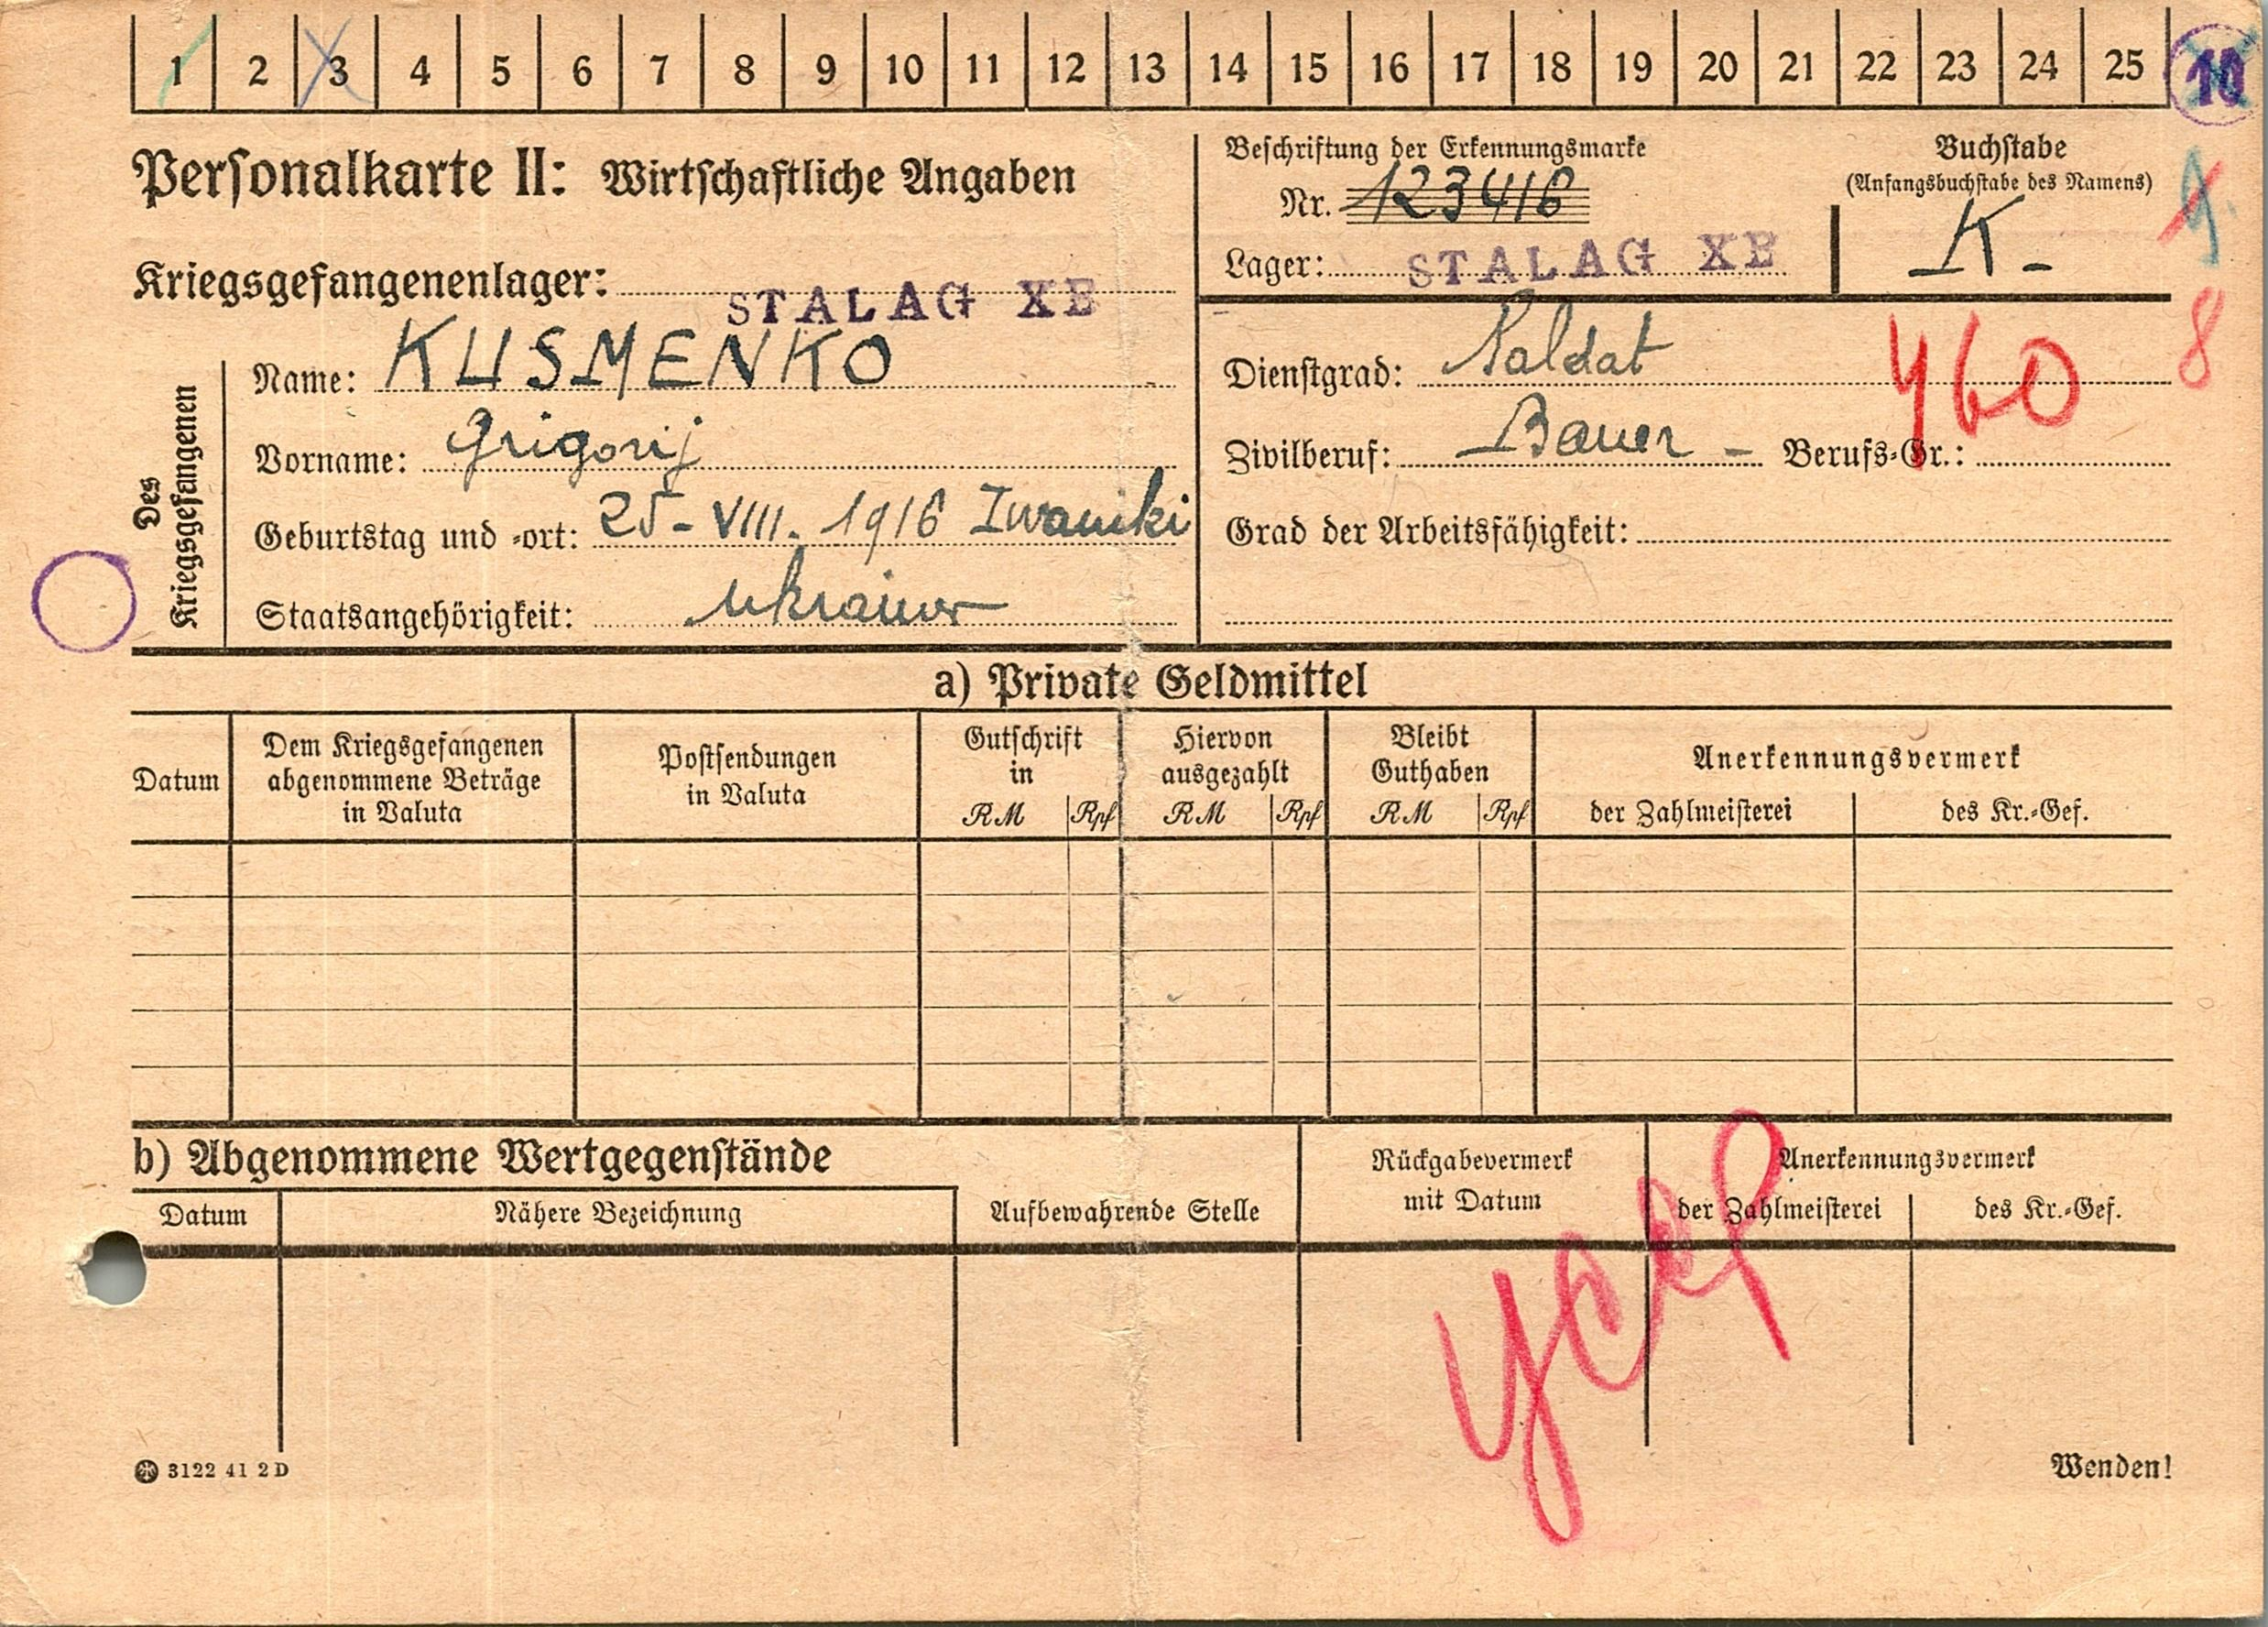 1 2 3 4 5 6 7 8 9 10 11 12 13 14 15 16 17 18 19 20 21 22 23 24 25 10
Personalkarte II: Wirtschaftliche Angaben
Beschriftung der Erkennungsmarke
Nr. 123416
Lager: STALAG XB
Buchstabe
(Anfangsbuchstabe des Namens)
K-
Kriegsgefangenenlager: STALAG XB
Des Kriegsgefangenen
Name: KUSMENKO
Vorname: Grigorij
Geburtstag und -ort: 25-VIII. 1916 Iwaniki
Staatsangehörigkeit: Ukrainer
8
Dienstgrad: Soldat
460
Zivilberuf: Bauer - Berufs-Gr.:
Grad der Arbeitsfähigkeit:
a) Private Geldmittel
Datum
Dem Kriegsgefangenen
abgenommene Beträge
in Valuta
Postsendungen
in Valuta
Gutschrift
in
RM Rpf
Hiervon
ausgezahlt
RM Rpf
Bleibt
Guthaben
RM Rpf
Anerkennungsvermerk
der Zahlmeisterei des Kr.-Gef.
b) Abgenommene Wertgegenstände
Datum Nähere Bezeichnung
Aufbewahrende Stelle
Rückgabevermerk
mit Datum
Anerkennungsvermerk
der Zahlmeisterei des Kr.-Gef.
3122 41 2D
Wenden!